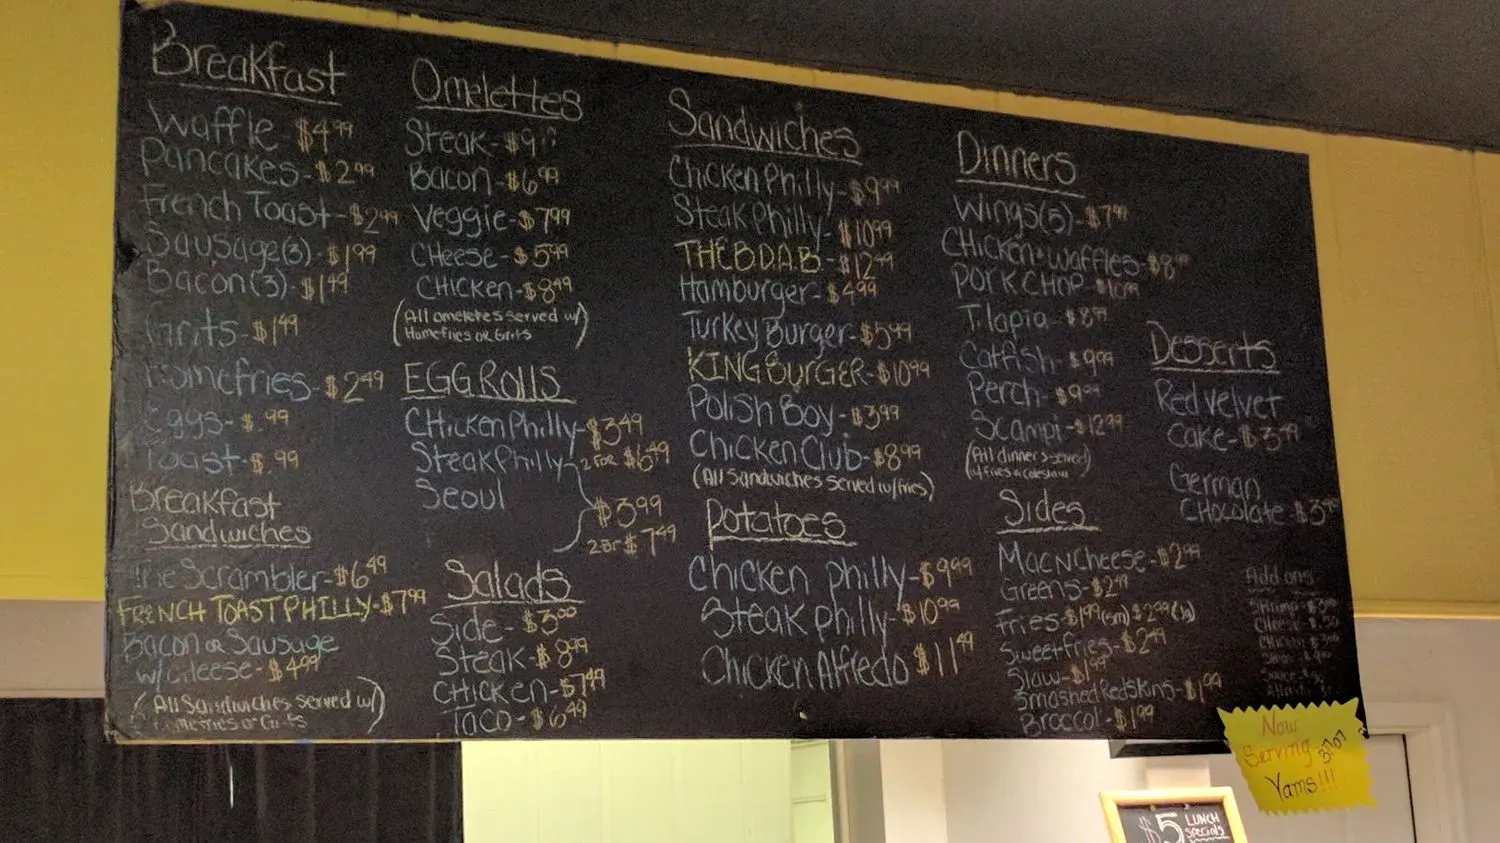 Breakfast
Waffle $4.99
Pancakes - $2.99
French Toast - $2.99
Sausage(3) - $1.99
Bacon(3) - $1.49
Grits - $1.49
Homefries - $2.49
Eggs - $.99
Toast - $.99
Breakfast
Sandwiches
The Scrambler - $6.49
FRENCH TOAST PHILLY - $7.99
Bacon or Sausage
w/cheese - $4.99
(All Sandwiches served w/
Homefries or Grits)
Omelettes
Steak - $9
Bacon - $6.99
Veggie - $7.99
CHeese - $5.99
CHICKEN - $8.49
(All omeletes served w/
Homefries or Grits)
EGG ROllS
CHicken Philly - $3.49
Steak Philly 2 FOR $6.49
Seoul
$3.99
2 for $7.49
Salads
Side - $3.00
Steak - $8.99
CHICKEN - $7.49
Taco - $6.49
Sandwiches
Chicken Philly - $9.99
Steak Philly - $10.99
THE B.D.A.B - $12.49
Hamburger - $4.99
Turkey Burger - $5.99
KING BURGER - $10.99
Polish Boy - $3.99
Chicken Club - $8.99
(All Sandwiches served w/fries)
Potatoes
Chicken Philly - $9.99
Steak Philly - $10.99
Chicken Alfredo $11.49
Dinners
Wings(5) - $7.99
CHICKEN + Waffles - $8
PORK CHOP - $10.99
Tilapia - $8.99
Catfish - $9.99
Perch - $9.99
Scampi - $12.99
(All dinners served
w/fries & coleslaw)
Sides
Mac N Cheese - $2.99
Greens - $2.99
Fries - $1.99 (sm) $2.99 (lg)
Sweet fries - $2.49
Slaw - $1.99
Smashed Redskins - $1.99
Broccoli - $1.99
Desserts
Red velvet
cake - $3.49
German
CHocolate - $3
Add ons
Shrimp - $3
CHeese - $.50
Chicken $3
Now
Serving
Yams!!!
$5 LUNCH
Specials